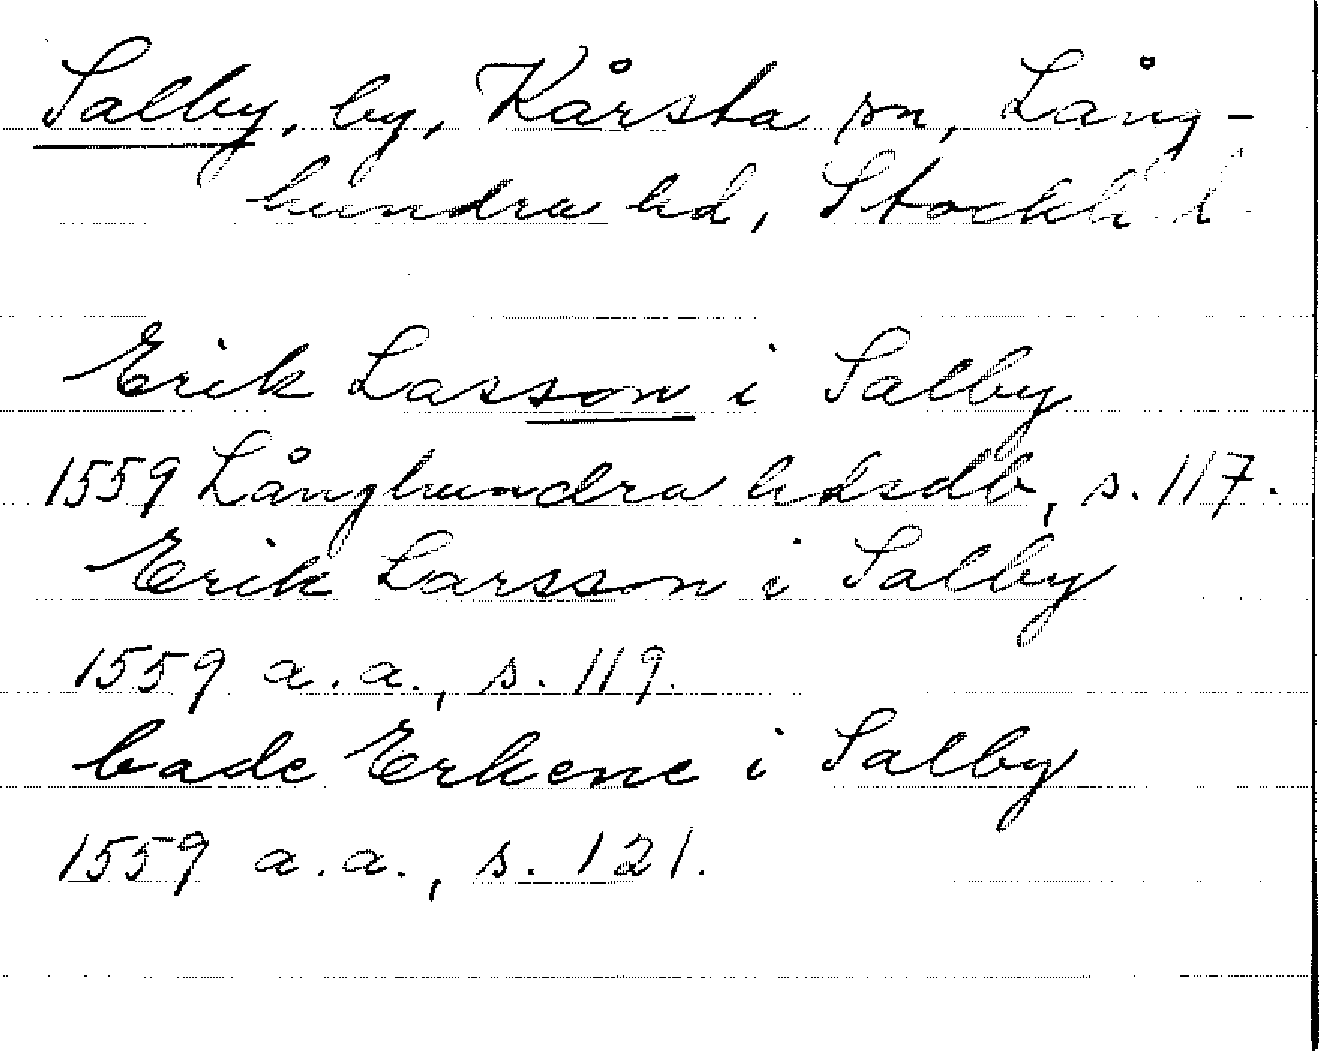 Salby, by, Kårsta sn, Lång-
hundra hd, Stockh l
Erik Lasson i Salby
1559 Långhundra hdsdb, s. 117.
Erik Larsson i Salby
1559 a.a., s. 119.
bade Erkene i Salby
1559 a.a., s. 121.